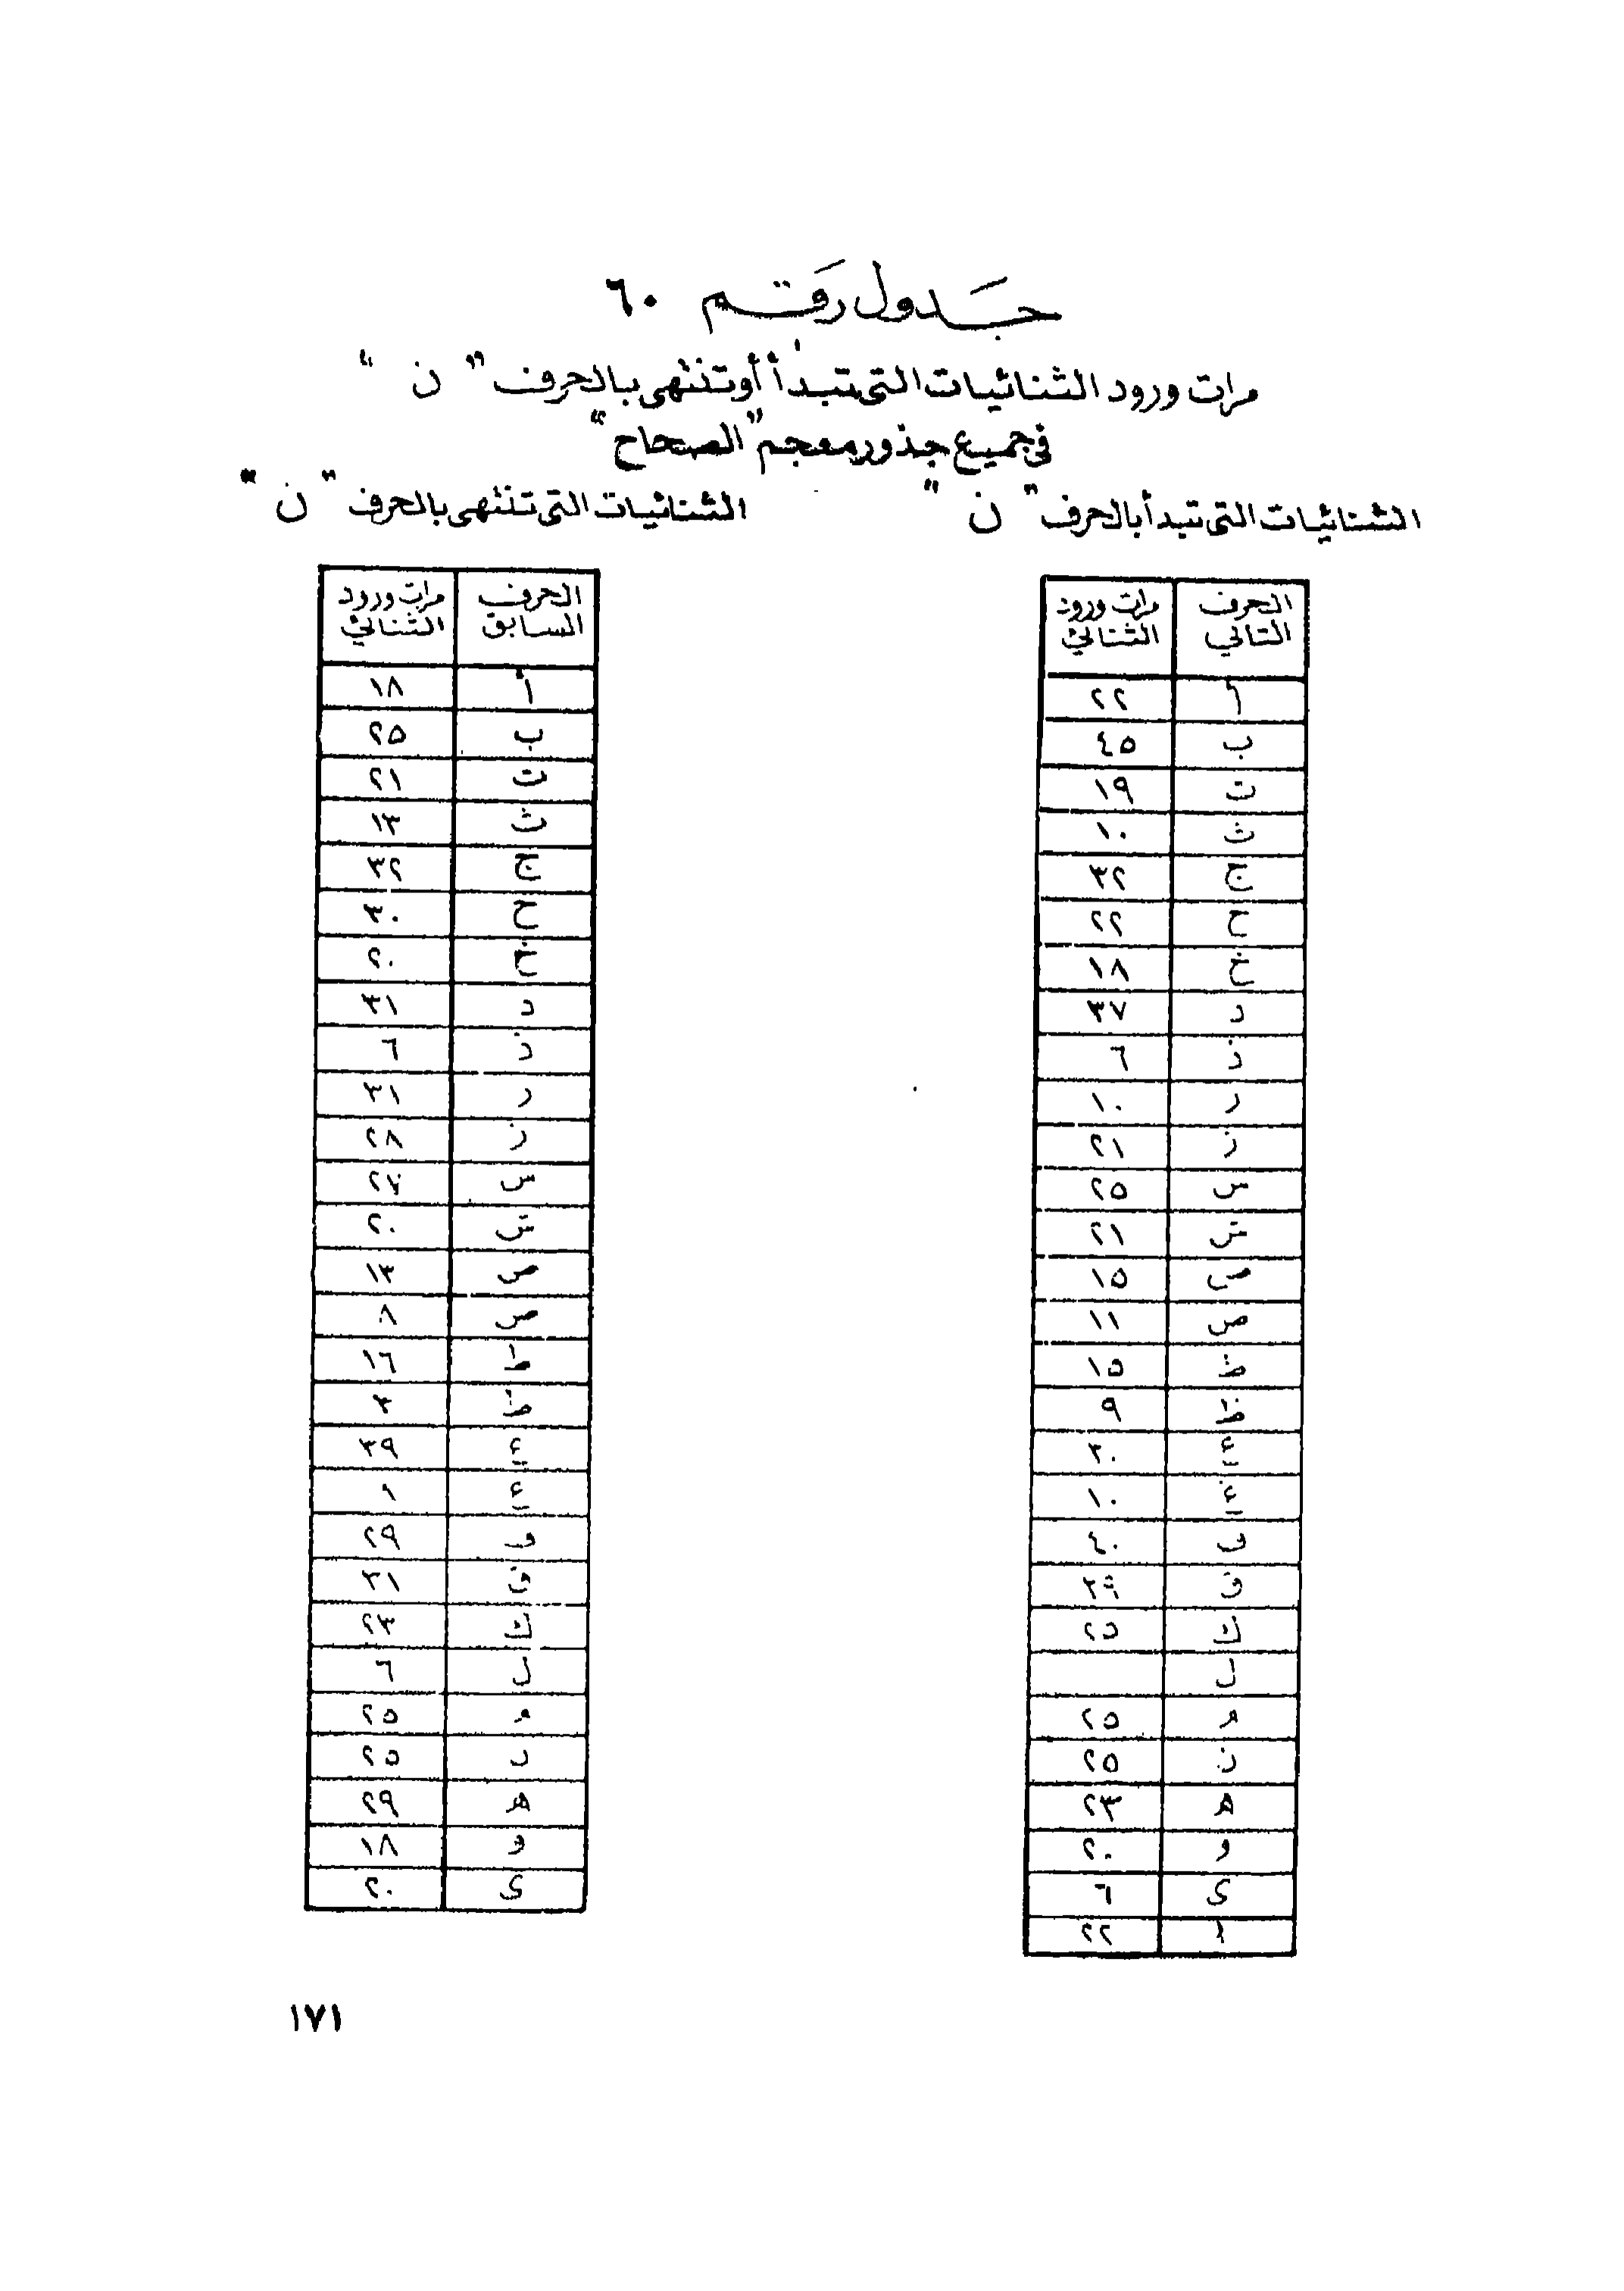 جَدول رَقم ٦٠
مرات ورود الثنائيات التى تبدأ أو تنتهى بالحرف " ن "
فى جميع جذور معجم "الصحاح"
الثنائيات التى تبدأ بالحرف " ن "
الحرف التالي | مرات ورود الثنائي
أ | ٢٢
ب | ٤٥
ت | ١٩
ث | ١٠
ج | ٣٢
ح | ٢٢
خ | ١٨
د | ٣٧
ذ | ٦
ر | ١٠
ز | ٢١
س | ٢٥
ش | ٢١
ص | ١٥
ض | ١١
ط | ١٥
ظ | ٩
ع | ٣٠
غ | ١٠
ف | ٤٠
ق
ك | ٢٥
ل
م | ٢٥
ن | ٢٥
هـ | ٢٣
و | ٢٠
ى | ٦
ا | ٢٢
الثنائيات التى تنتهى بالحرف " ن "
الحرف السابق | مرات ورود الثنائي
أ | ١٨
ب | ٢٥
ت | ٢١
ث | ١٣
ج | ٣٢
ح | ٣٠
خ | ٢٠
د | ٣١
ذ | ٦
ر | ٣١
ز | ٢٨
س
ش | ٢٠
ص | ١٣
ض | ٨
ط | ١٦
ظ | ٣
ع | ٣٩
غ
ف | ٢٩
ق | ٣١
ك | ٢٣
ل | ٦
م | ٢٥
ن | ٢٥
هـ | ٢٩
و | ١٨
ى | ٢٠
١٧١